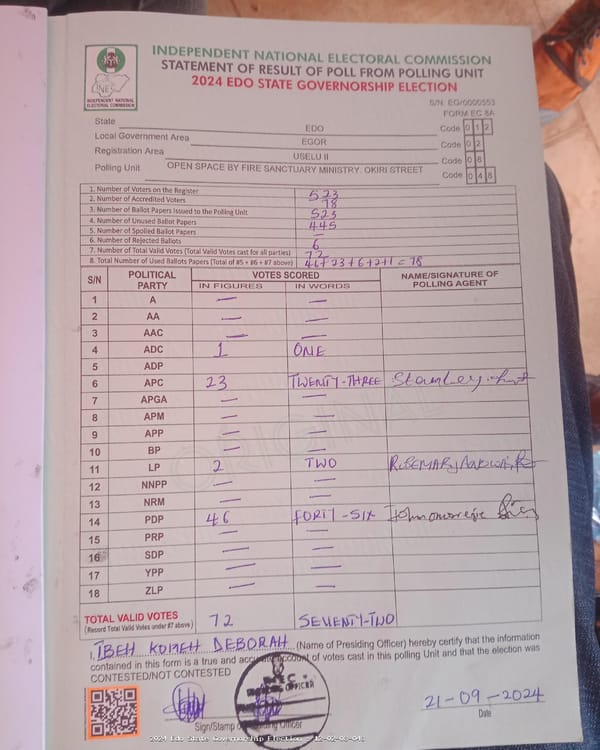 INDEPENDENT NATIONAL ELECTORAL COMMISSION
STATEMENT OF RESULT OF POLL FROM POLLING UNIT
2024 EDO STATE GOVERNORSHIP ELECTION
INDEPENDENT NATIONAL ELECTORAL COMMISSION
S/N: EG/0000553
FORM EC 8A
State EDO Code 0 1 2
Local Government Area EGOR Code 0 2
Registration Area USELU II Code 0 8
Polling Unit OPEN SPACE BY FIRE SANCTUARY MINISTRY. OKIRI STREET Code 0 4 8
1. Number of Voters on the Register 523
2. Number of Accredited Voters 78
3. Number of Ballot Papers Issued to the Polling Unit 523
4. Number of Unused Ballot Papers 445
5. Number of Spoiled Ballot Papers —
6. Number of Rejected Ballots 6
7. Number of Total Valid Votes (Total Valid Votes cast for all parties) 72
8. Total Number of Used Ballots Papers (Total of #5 + #6 + #7 above) 46+23+6+2+1=78
S/N POLITICAL PARTY VOTES SCORED NAME/SIGNATURE OF POLLING AGENT
IN FIGURES IN WORDS
1 A — —
2 AA — —
3 AAC — —
4 ADC 1 ONE
5 ADP
6 APC 23 TWENTY-THREE Stanley
7 APGA — —
8 APM — —
9 APP — —
10 BP — —
11 LP 2 TWO ROSEMARY
12 NNPP — —
13 NRM — —
14 PDP 46 FORTY-SIX John
15 PRP — —
16 SDP — —
17 YPP — —
18 ZLP — —
TOTAL VALID VOTES 72 SEVENTY-TWO
(Record Total Valid Votes under #7 above)
I, IBEH KOMEH DEBORAH (Name of Presiding Officer) hereby certify that the information
contained in this form is a true and accurate account of votes cast in this polling Unit and that the election was
CONTESTED/NOT CONTESTED
INEC
PRESIDING OFFICER
21-09-2024
Sign/Stamp of Presiding Officer Date
2024 Edo State Governorship Election
ORIGINAL